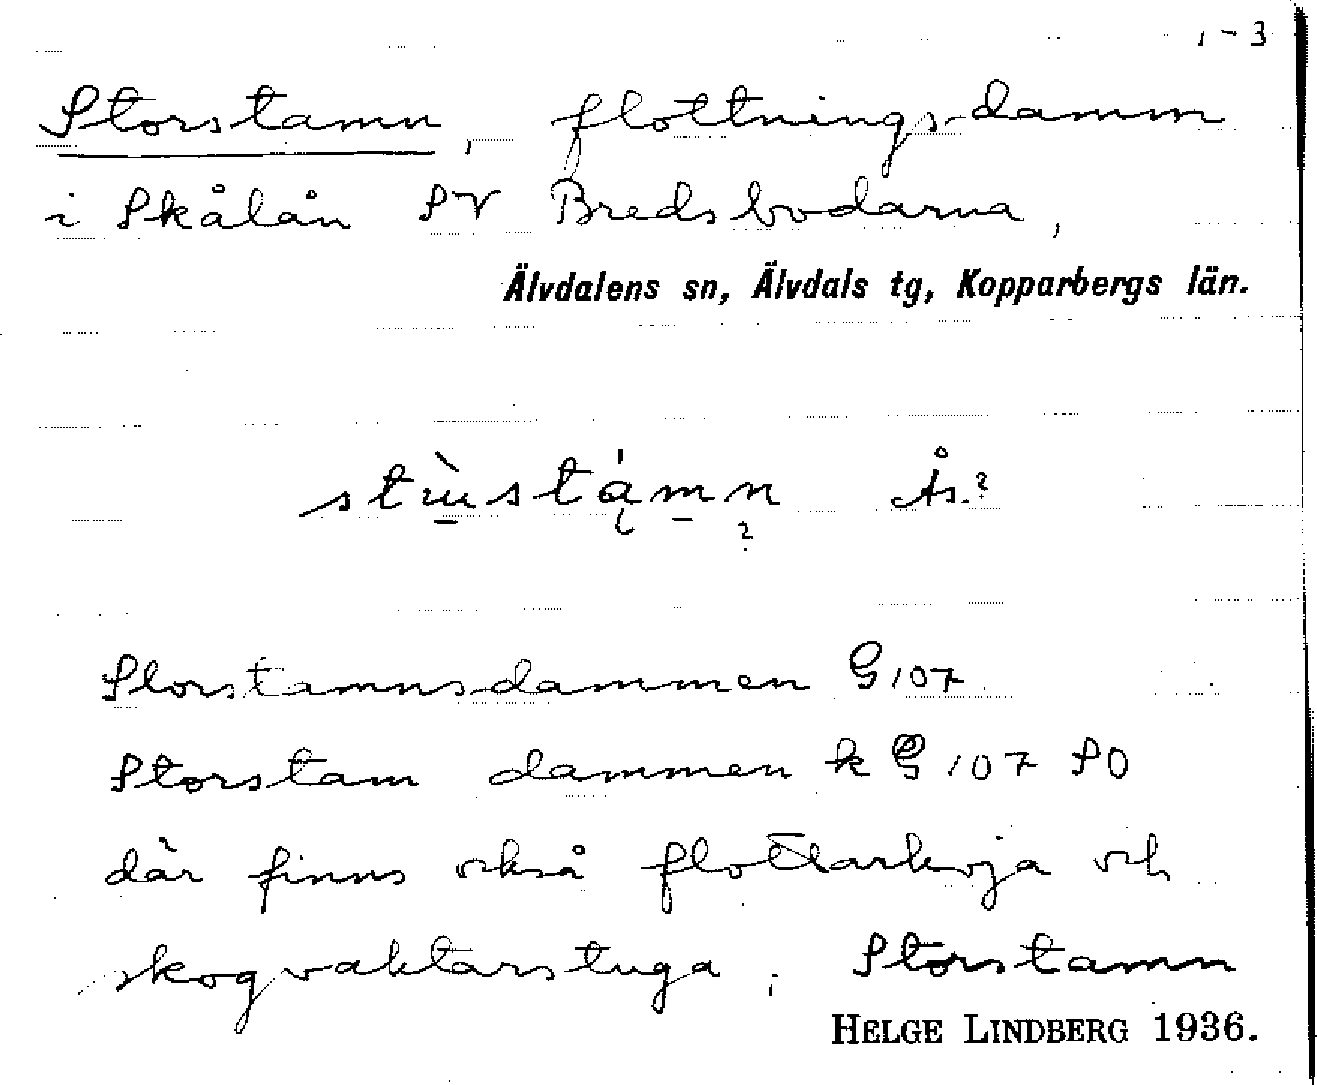 1-3
Storstamn, flottningsdamm
i Skålån SV Bredsbodarna,
Älvdalens sn, Älvdals tg, Kopparbergs län.
Ås.?
Storstamnsdammen G107
Storstam dammen k G 107 SO
där finns också flottarkoja och
skogvaktarstuga; Storstamn
HELGE LINDBERG 1936.